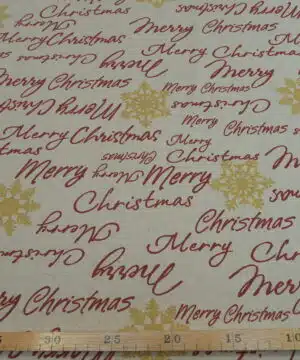 Merry Christmas
Merry Christmas
Merry
Merry Christmas
Christmas
Christmas
Merry
Merry
Merry Christmas
Merry Christmas
Merry Christmas
Christmas
Merry Christmas
Christmas
Merry Christmas
Merry
Christmas
Merry Merry Merry
Christmas
Christmas
Merry
Merry
Christmas
Christmas
Merry
Merry
Christmas
Merry Christmas
Merry